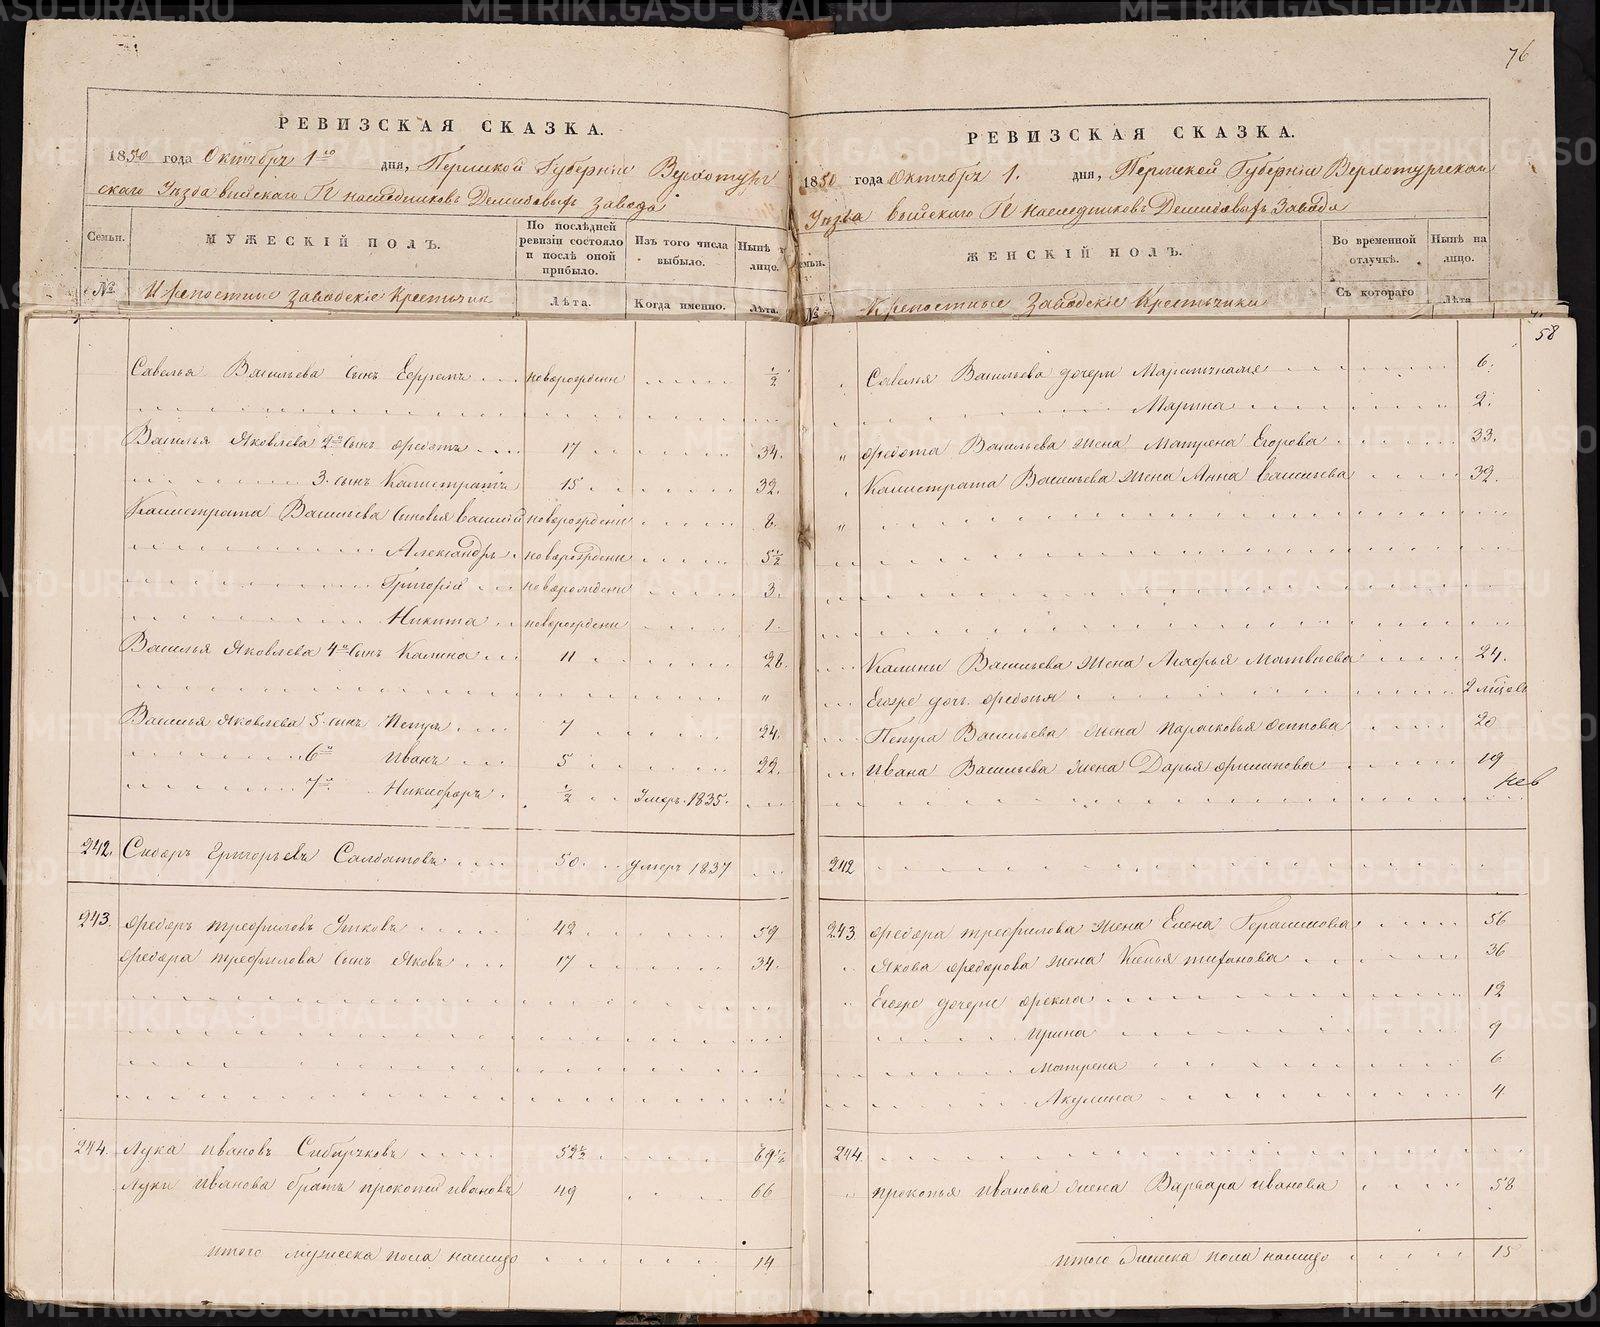 76
РЕВИЗСКАЯ СКАЗКА.
1850 года Октября 1го дня, Пермской Губернии Верхотур
скаго Уѣзда Выйскаго Гг наследниковъ Демидовыхъ завода
Семьи. МУЖЕСКІЙ ПОЛЪ. По послѣдней ревизіи состояло и послѣ оной прибыло. Изъ того числа выбыло. Нынѣ на лицо.
№ Крепостные заводские Крестьяне Лѣта. Когда именно. Лѣта.
Савелья Васильева сынъ Ефремъ новорожденн ½
Василья Яковлева 2й сынъ Федотъ 17 34.
3. сынъ Калистратъ 15 32.
Калистрата Васильева сыновья Василій новорожденн 8
Александръ новорожденн 5½
Григорій новорожденн 3.
Никита новорожденн 1.
Василья Яковлева 4й сынъ Калина 11 28.
Василья Яковлева 5. сынъ Петръ 7 24.
6й Иванъ 5 22.
7й Никифоръ ½ Умеръ 1835.
242. Сидоръ Григорьевъ Солдатовъ 50. умеръ 1837
243. Федоръ Трефиловъ Зыковъ 42 59
Федора Трефилова сынъ Яковъ 17 34.
244. Лука Ивановъ Сибиряковъ 52½ 69½
Луки Иванова братъ Прокопій Ивановъ 49 66
итого мужеска пола налицо 14
РЕВИЗСКАЯ СКАЗКА.
1850 года Октября 1. дня, Пермской Губернии Верхотурскаго
Уѣзда Выйскаго Гг Наследниковъ Демидовыхъ Завода
Семьи. ЖЕНСКІЙ ПОЛЪ. Во временной отлучкѣ. Нынѣ на лицо.
№ Крепостные Заводские Крестьянки Съ котораго Лѣта
58
Савелья Васильева дочери Маремьяна 6.
Марина 2.
Федота Васильева жена Матрена Егорова 33.
Калистрата Васильева жена Анна Савельева 32.
Калины Васильева жена Агафья Матвиева 24.
Егоже дочь Федосья 2 мѣсяц
Петра Васильева жена Парасковья Осипова 20
Ивана Васильева жена Дарья Филипова 19
242
243. Федора Трефилова жена Елена Герасимова 56
Якова Федорова жена Ксенья Тиханова 36
Егоже дочери Фекла 12
Ирина 9
Матрена 6
Акулина 4
244.
Прокопья Иванова жена Варвара Иванова 58
итого женска пола налицо 15
METRIKI.GASO-URAL.RU